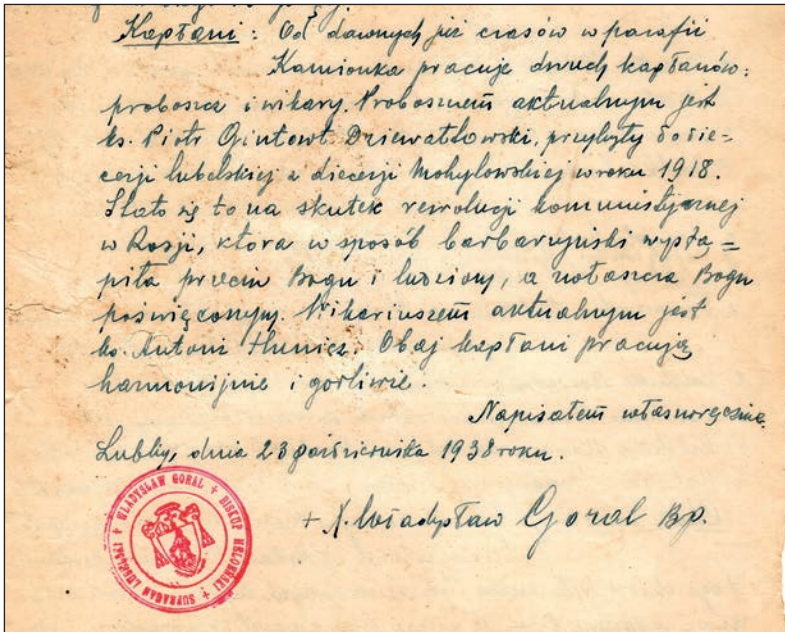 Kapłani: Od dawnych już czasów w parafii
Kamionka pracuje dwuch kapłanów:
proboszcz i wikary. Proboszczem aktualnym jest
ks. Piotr Gintowt Dziewałtowski, przybyły do die=
cezji lubelskiej z diecezji Mohylowskiej w roku 1918.
Stało się to na skutek rewolucji komunistycznej
w Rosji, która w sposób barbaryński wystą=
piła przeciw Bogu i ludziom, a zwłaszcza Bogu
poświęconym. Wikariuszem aktualnym jest
ks. Antoni Hunicz. Obaj kapłani pracują
harmonijnie i gorliwie.
Napisałem własnoręcznie.
Lublin, dnia 23 października 1938 roku.
+ X. Władysław Goral Bp.
WŁADYSŁAW GORAL + BISKUP MELOENSKI + SUFRAGAN LUBELSKI +